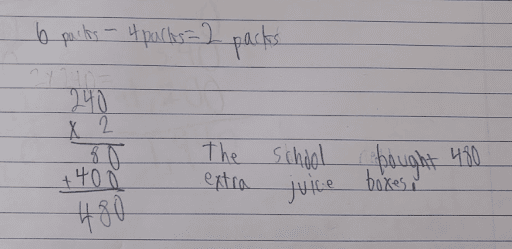 6 packs - 4 packs = 2 packs
240
x 2
80
+400
480
The school bought 480
extra juice boxes.